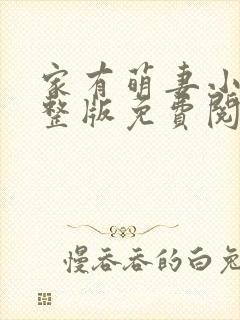 家有萌妻小
整版免費閱
慢吞吞的白兔